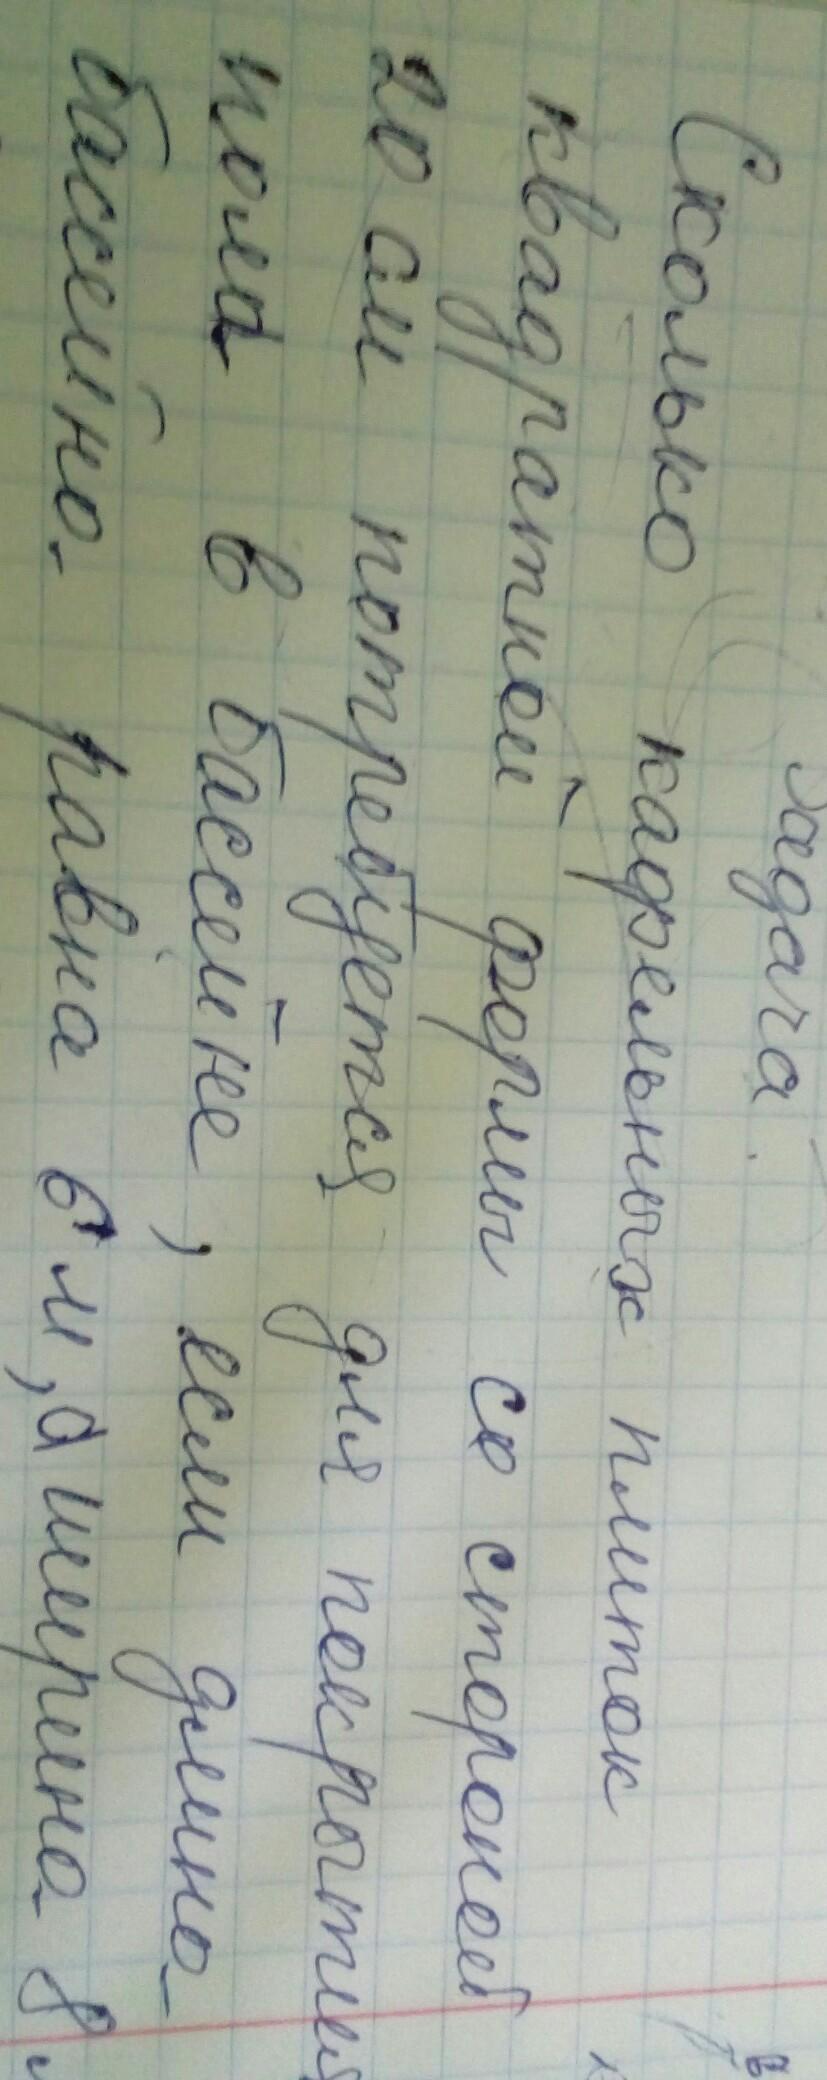 Задача.
Сколько кафельных плиток
квадратной формы со стороной
20 см потребуется для покрытия
пола в бассейне, если длина
бассейна равна 6 м, а ширина 8 м